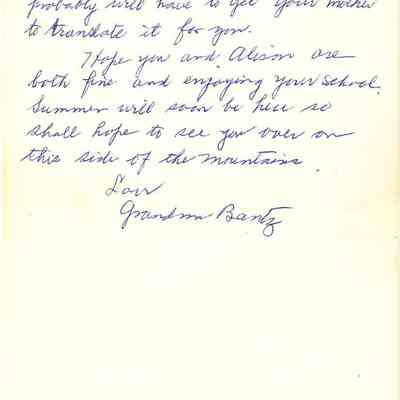 probably will have to get your mother
to translate it for you.
Hope you and Alison are
both fine and enjoying your school.
Summer will soon be here so
shall hope to see you over on
this side of the mountains.
Love
Grandma Bantz